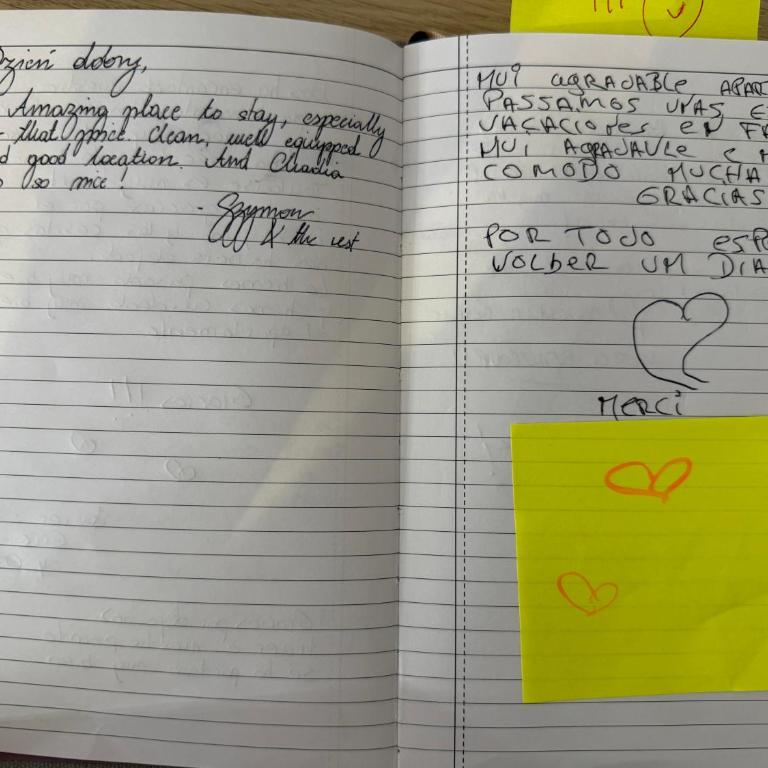 Dzień dobry,
Amazing place to stay, especially
that price. Clean, well equipped
good location. And Claudia
so nice!
- Szymon
& the rest
MUi AGRADABLE APART
PASSAMOS UNAS E
VACACIONES EN FA
MUi AGRADAVLE E M
COMODO MUCHA
GRACIAS
POR TODO ESPE
VOLBER UM DIA
MERCi